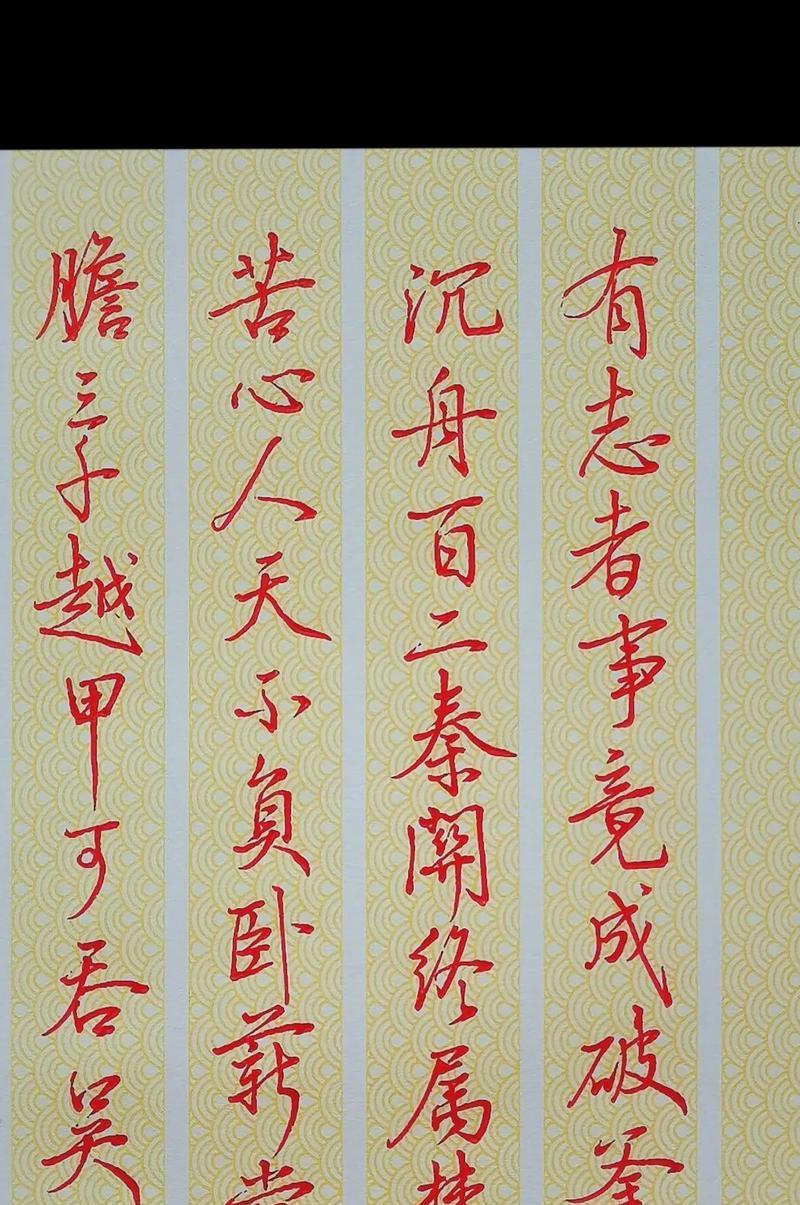 有志者事竟成破釜
沉舟百二秦關終属
苦心人天不負卧薪
膽三千越甲可吞吴